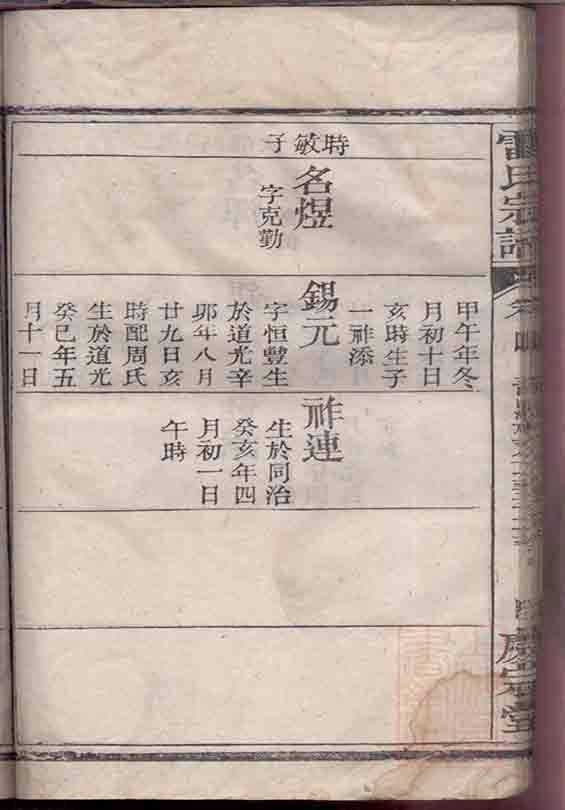 雷氏宗譜
時敏子
名煜
字克勤
甲午年冬
月初十日
亥時生子
一祚添
錫元
字恒豐生
於道光辛
卯年八月
廿九日亥
時配周氏
生於道光
癸巳年五
月十一日
祚連
生於同治
癸亥年四
月初一日
午時